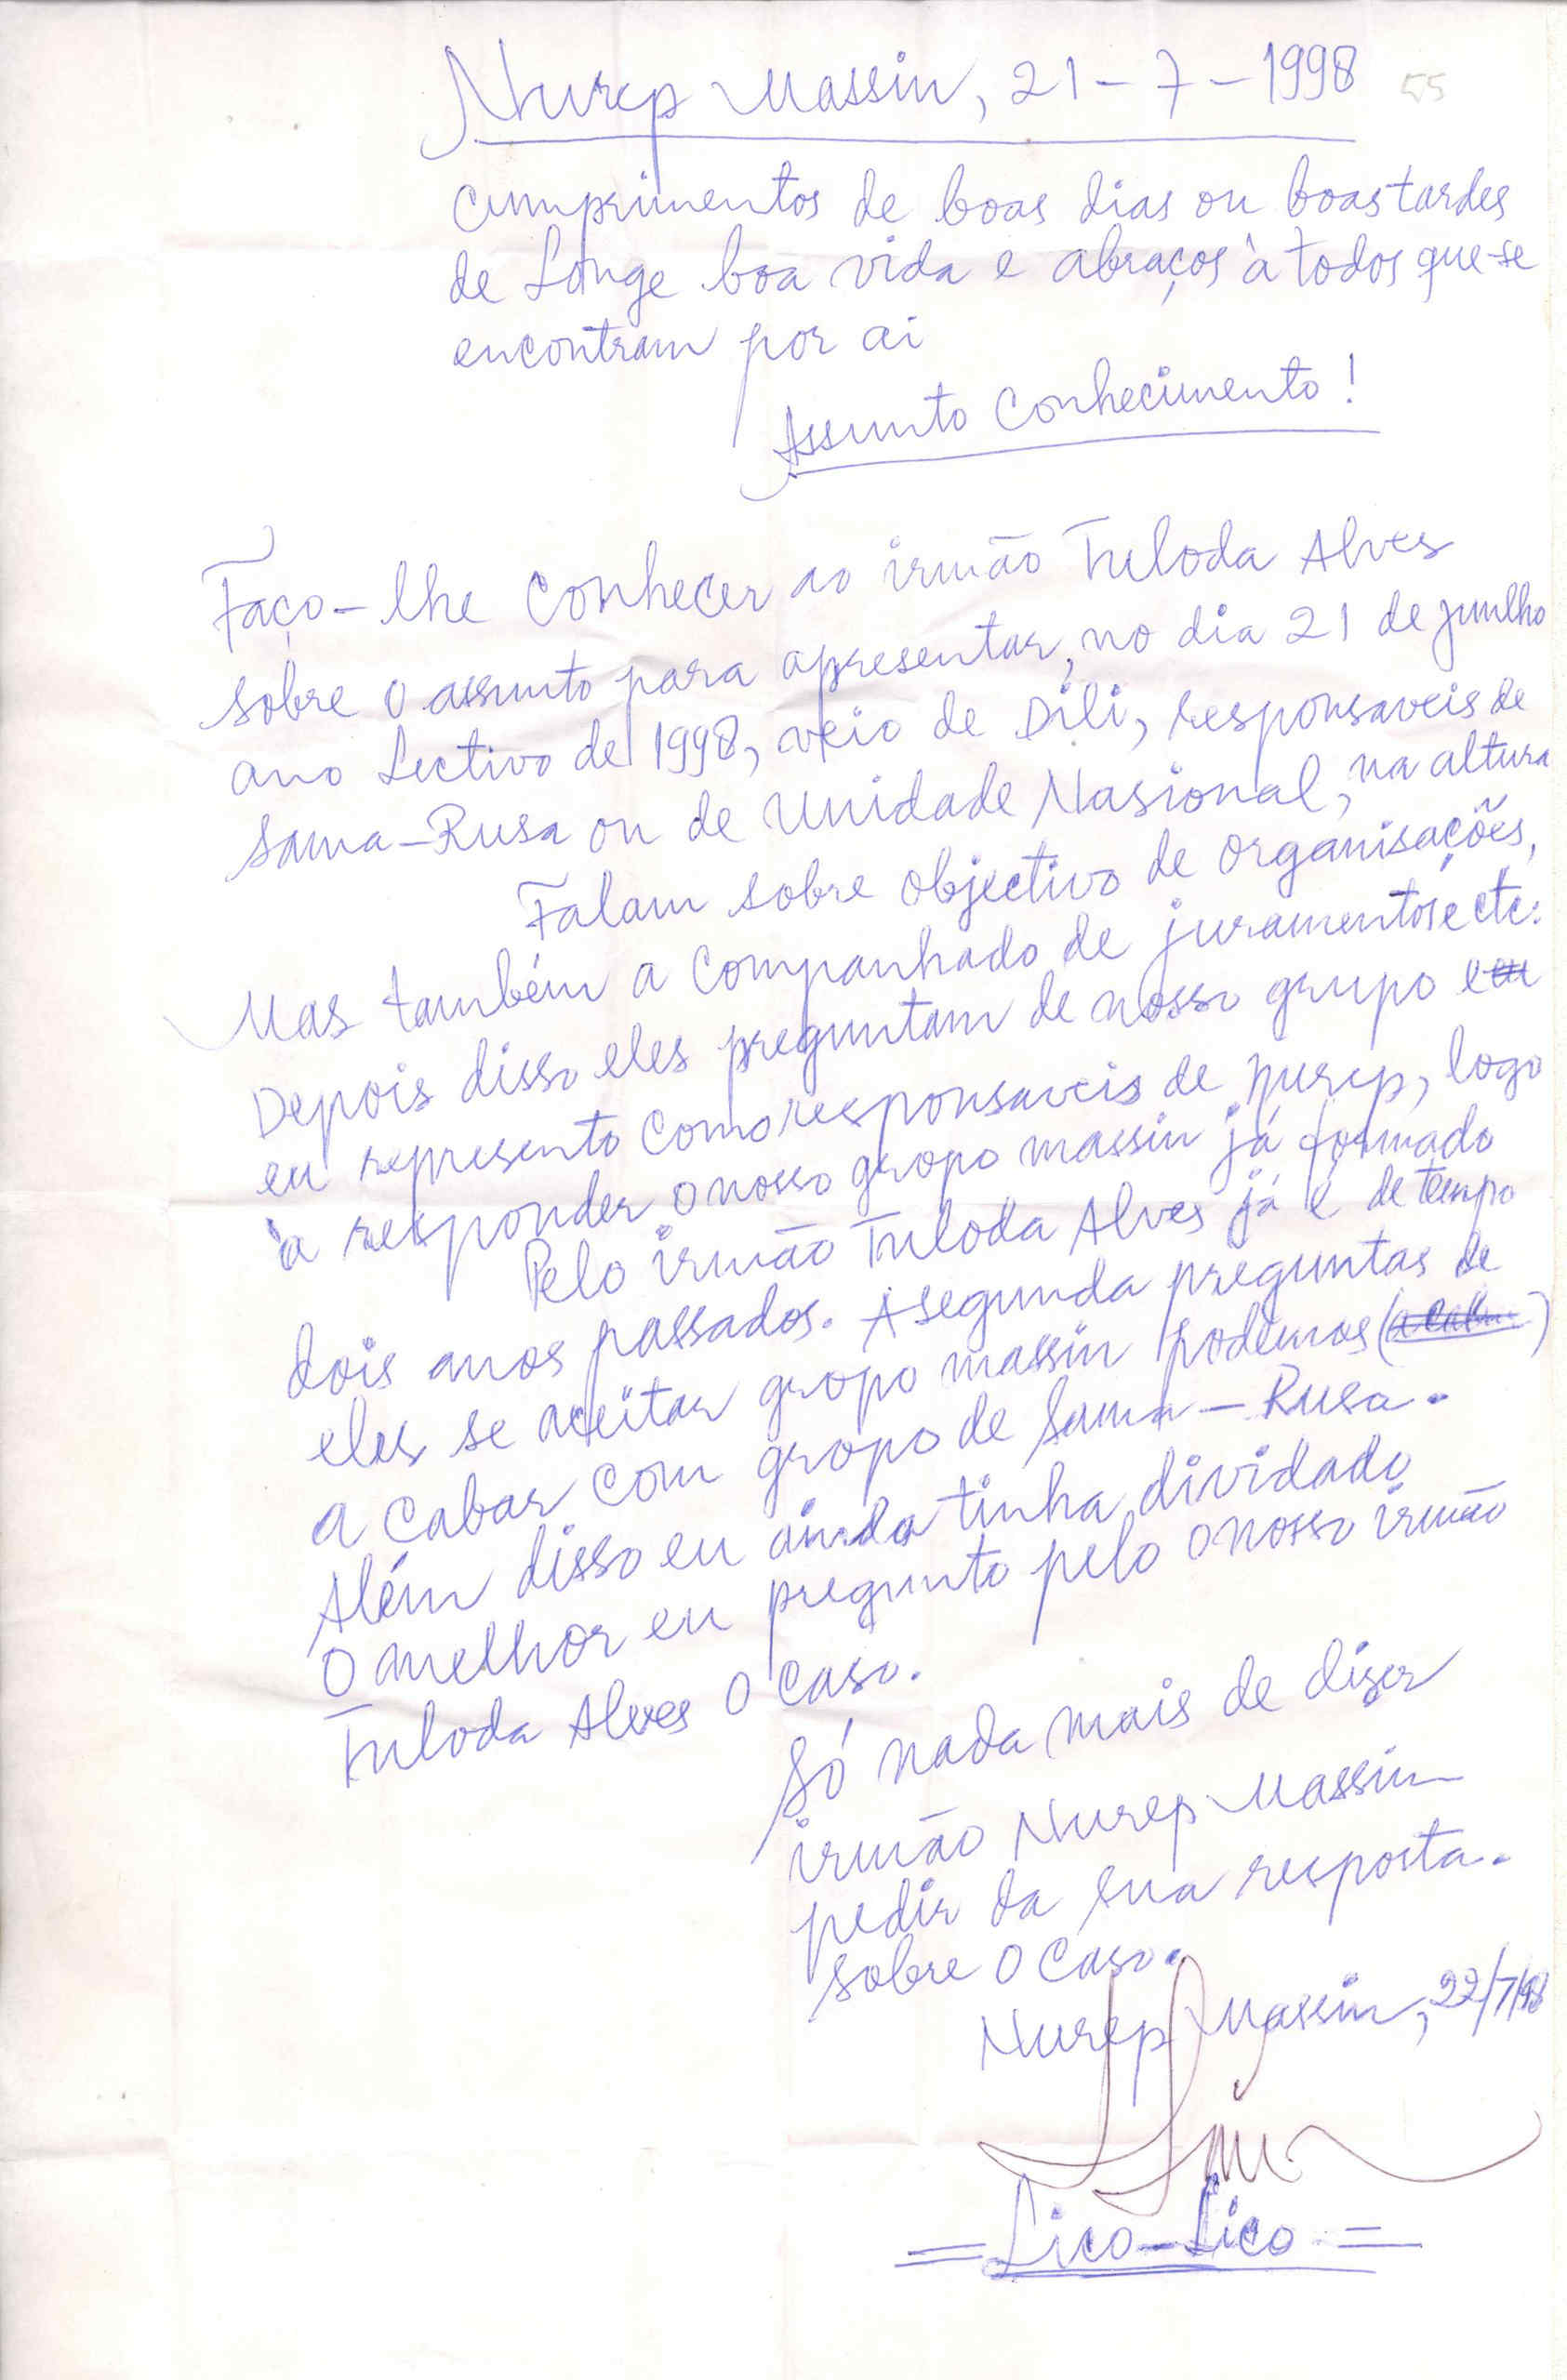 Nurep Massin, 21-7-1998
55
cumprimentos de boas dias ou boas tardes
de Longe boa vida e abraços à todos que-se
encontram por ai
Assunto Conhecimento!
Faço-lhe conhecer ao irmão Tuloda Alves
sobre o assunto para apresentar, no dia 21 de junlho
ano Lectivo de 1998, veio de Dili, responsaveis de
Sama-Rusa ou de Unidade Nasional, na altura
Falam sobre objectivo de organisações,
Mas também a companhado de juramentos e etc:
Depois disso eles preguntam de nosso grupo e
eu represento como responsaveis de Nurep, logo
à responder o nosso gropo massin já formado
Pelo irmão Tuloda Alves já é de tempo
dois anos passados. A segunda preguntas de
eles se aceitar gropo massin podemos (acabar)
a cabar com gropo de Sama-Rusa.
Além disso eu ainda tinha dividado
O melhor eu pregunto pelo o nosso irmão
Tuloda Alves o caso.
Só nada mais de diser
irmão Nurep Massin
pedir da sua resposta.
sobre o caso.
Nurep Massin, 22/7/98
=Lico-Lico=